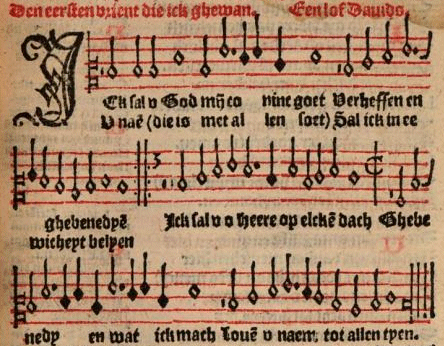 Den eersten vrient die ick ghewan. Een lof Dauids.
ICk sal v God mijn co ninc goet Verheffen en
V naē (die is met al len soet) Sal ick in ee
ghebenedyē Ick sal v o heere op elckē dach Ghebe
wicheyt belyen
nedy en wat ick mach Louē v naem, tot allen tyen.